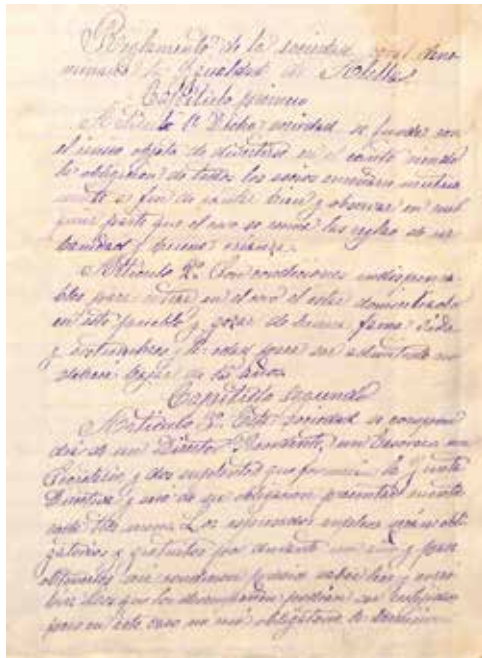 Reglamento de la sociedad coral deno-
minada la Igualdad de Rubella
Capitulo primero
Artículo 1º Dicha sociedad se funda con
el unico objeto de divertirse en el canto siendo
la obligacion de todos los socios enseñarse mutua
mente a fin de cantar bien y observar en cual
quier parte que el coro se reuna las reglas de ur
banidad y buena crianza.
Artículo 2º Son condiciones indispensa-
bles para entrar en el coro el estar domiciliado
en este pueblo y gozar de buena fama vida
y costumbres, la edad para ser admitido no
debera bajar de 15 años
Capitulo segundo
Artículo 3º Esta sociedad se compon
drá de un Director Presidente, un Tesorero un
Secretario y dos suplentes que formaran la Junta
Directiva y será de su obligacion presentar cuentas
cada tres meses. Los espresados empleos serán obli
gatorios y gratuitos por durante un año y para
obtenerlos será condicion precisa saber leer y escri
bir los que los desempeñen podran ser reelegidos
pero en este caso no será obligatorio